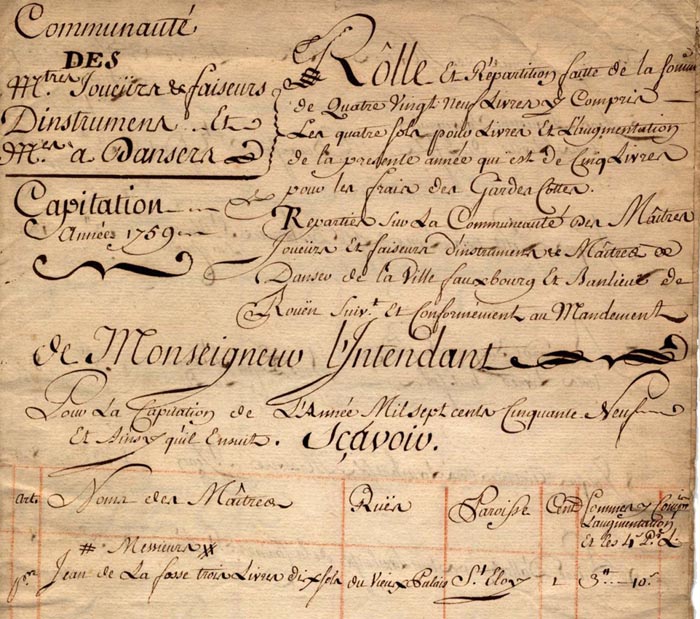 Communauté
DES
M.tres Joueürs & faiseurs
Dinstrumens .. Et
M.res a Dansers
Capitation
Année 1759
Rôlle Et Répartition faitte de la somme
de Quatre Vingt Neuf Livres y Compris
Les quatre sols pour Livres Et L'augmentation
de la presente année qui est de Cinq Livres
pour les frais des Gardes Costes.
Repartie Sur La Communeauté des Maîtres
Joueürs Et faiseurs d'instrumens & Maîtres de
Danser de la Ville fauxbourg et Banlieüe de
Roüen Suiv.t et Conformement au Mandement
de Monseigneur l'Intendant
Pour La Capitation de L'Année Mil sept cents Cinquante Neuf
Et Ainsy qu'il Ensuit. Sçavoir.
Art. Noms des Maîtres Ruës Paroisse Sommes y Compris
L'augmentation
Et les 4 s. P.r L.
# Messieurs
Jean de La fosse trois Livres dix sols du Vieux Palais S.t Eloy 1 3.tt 10.s